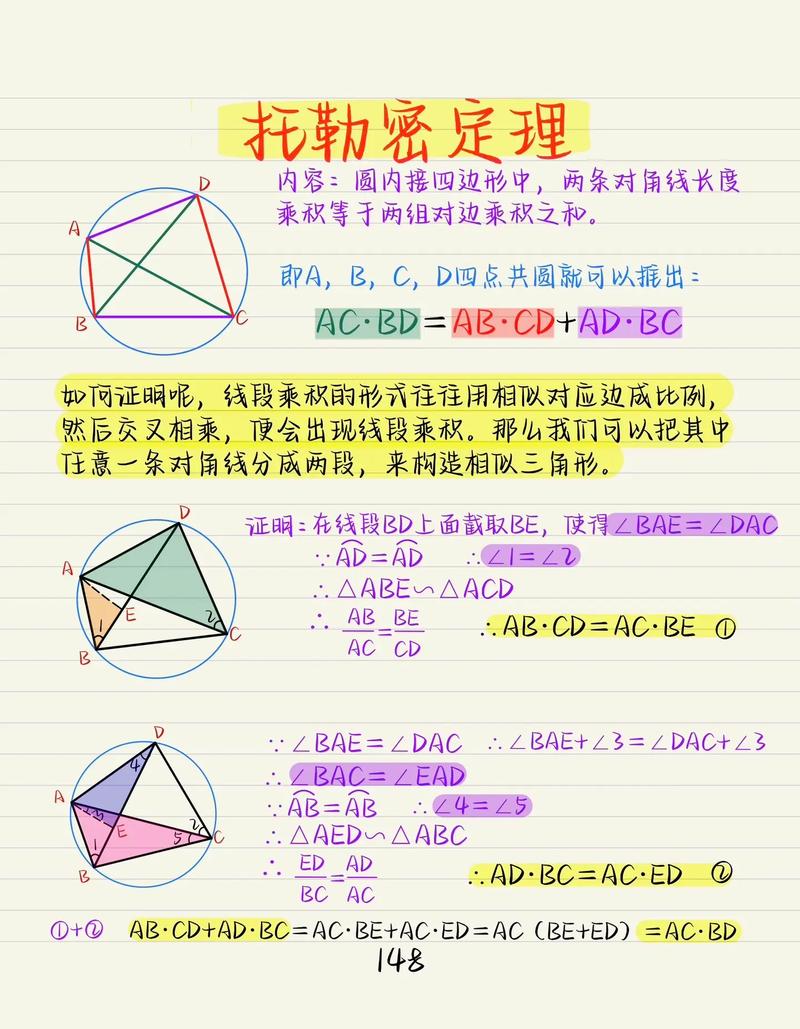 托勒密定理
内容：圆内接四边形中，两条对角线长度
乘积等于两组对边乘积之和。
D
A
B
C
即A，B，C，D四点共圆就可以推出：
AC·BD=AB·CD+AD·BC
如何证明呢，线段乘积的形式往往用相似对应边成比例，
然后交叉相乘，便会出现线段乘积。那么我们可以把其中
任意一条对角线分成两段，来构造相似三角形。
D
A
E
1
2
B
C
证明：在线段BD上面截取BE，使得∠BAE=∠DAC
∵A͡D=A͡D ∴∠1=∠2
∴△ABE∽△ACD
∴ AB/AC=BE/CD ∴AB·CD=AC·BE ①
D
4
A
3
E
2
1
5
C
B
∵∠BAE=∠DAC ∴∠BAE+∠3=∠DAC+∠3
∴∠BAC=∠EAD
∵A͡B=A͡B ∴∠4=∠5
∴△AED∽△ABC
∴ ED/BC=AD/AC ∴AD·BC=AC·ED ②
①+② AB·CD+AD·BC=AC·BE+AC·ED=AC（BE+ED）=AC·BD
148